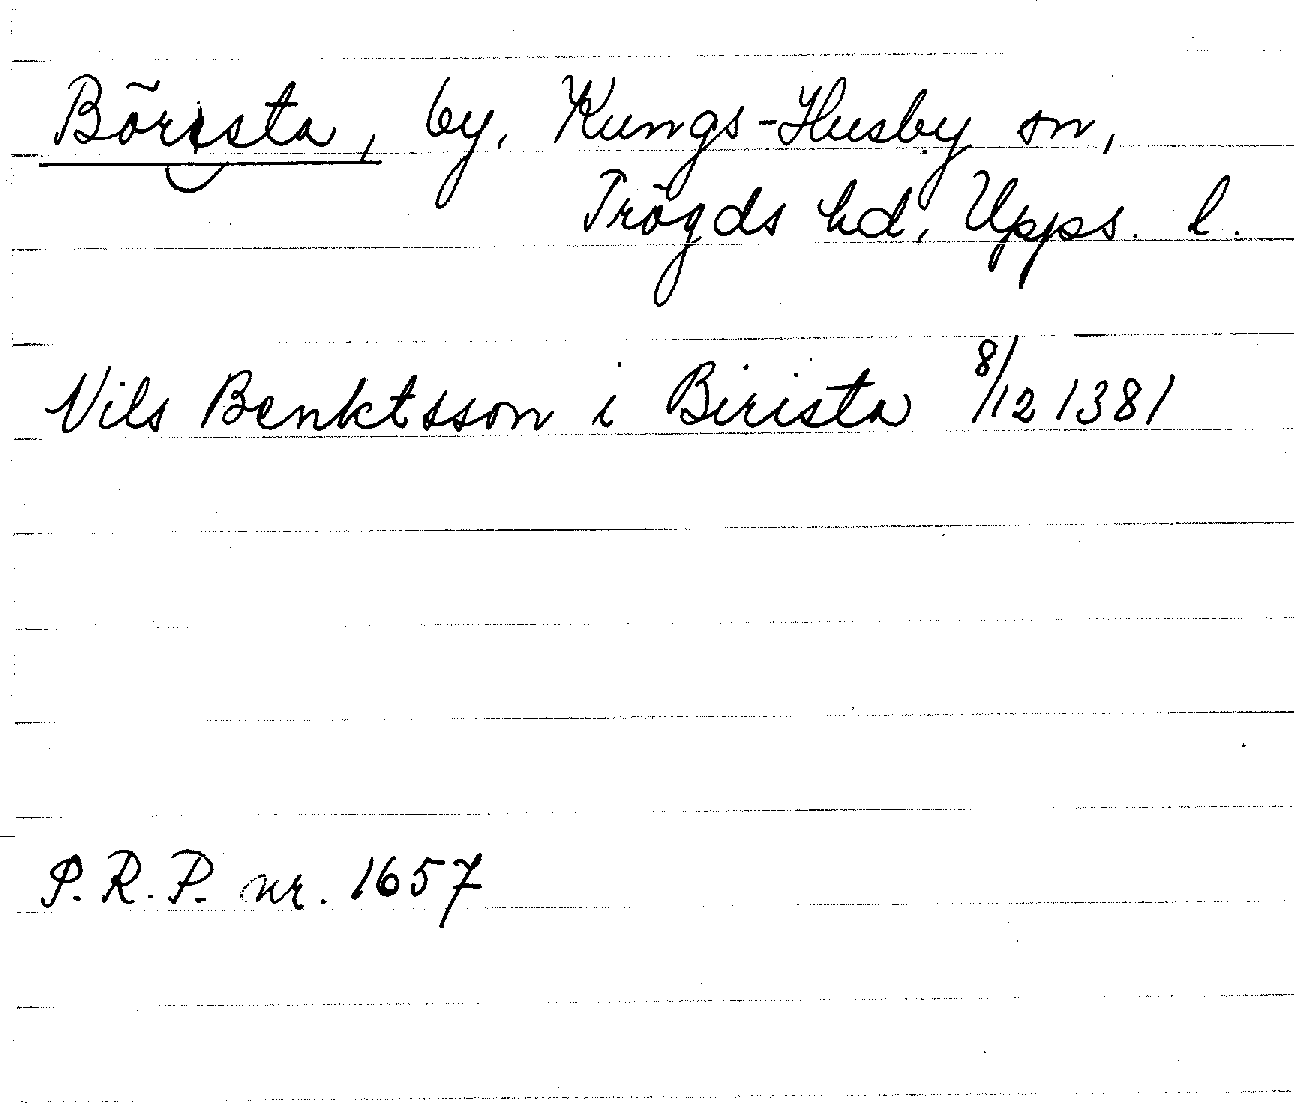 Börsta, by, Kungs-Husby sn,
Trögds hd, Upps. l.
Nils Benktsson i Birista 8/12 1381
P.R.P. nr. 1657